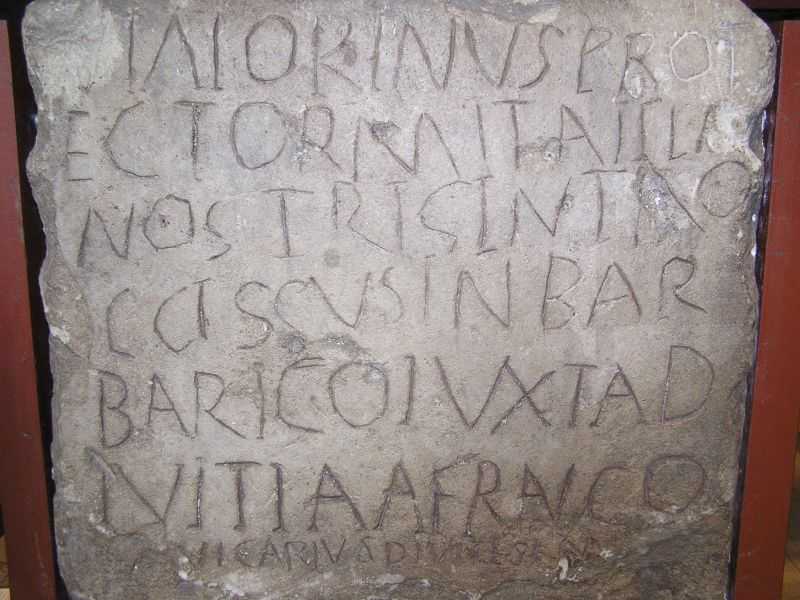 VIATORINVSPROT
ECTORMITAVITAN
NOSTRIGINTAO
CCISVSINBAR
BARICOIVXTAD
IVITIAAFRANCO
VICARIVSDIVITESI